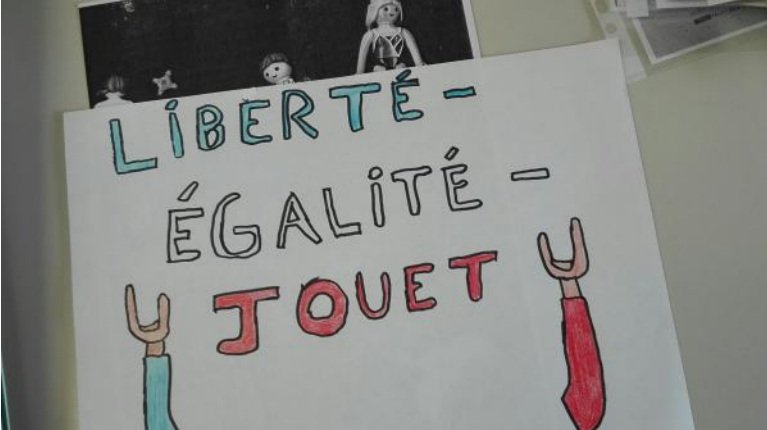 LIBERTÉ -
ÉGALITÉ -
JOUET